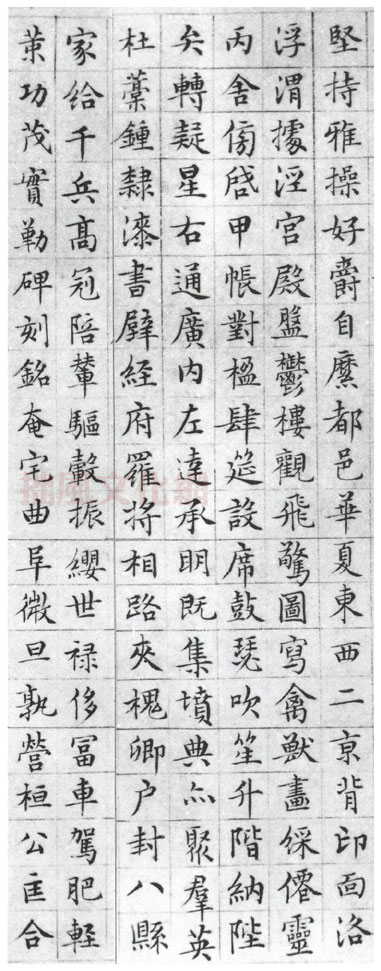 堅持雅操好爵自縻都邑華夏東西二亰背邙面洛
浮渭據涇宮殿盤鬱樓觀飛驚圖寫禽獸畫綵僊靈
丙舍傍啓甲帳對楹肆筵設席鼓瑟吹笙升階納陛
矣轉疑星右通廣内左達承明既集墳典亦聚羣英
杜藁鍾隸漆書壁経府羅將相路夾槐卿户封八縣
家給千兵髙冠陪輦驅轂振纓世禄侈冨車駕肥軽
策功茂實勒碑刻銘奄宅曲阜微旦孰營桓公匡合
拙風文化網